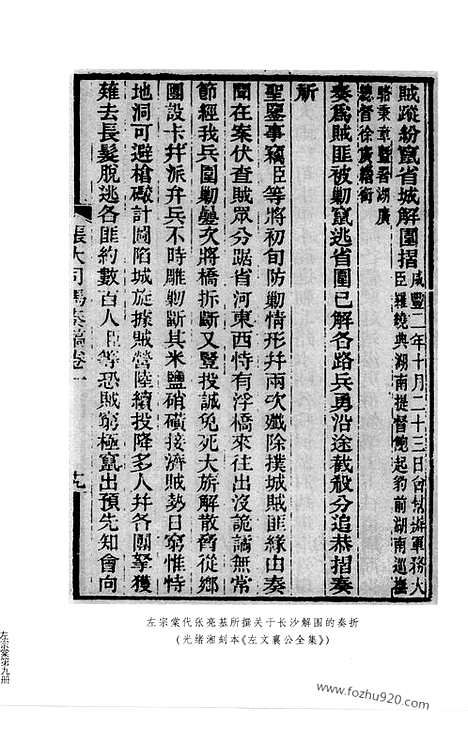 賊蹤紛竄省城解圍摺咸豐二年十月二十三日會幫辦軍務大
臣羅繞典湖南提督鮑起豹前湖南巡撫
駱秉章暨署湖廣
總督徐廣縉銜
奏爲賊匪被勦竄逃省圍已解各路兵勇沿途截殺分追恭摺奏
祈
聖鑒事竊臣等將初旬防勦情形幷兩次殲除撲城賊匪緣由奏
聞在案伏查賊眾分踞省河東西恃有浮橋來往出沒詭譎無常
節經我兵圍勦屢次將橋拆斷又豎投誠免死大旂解散脅從鄉
團設卡幷派弁兵不時雕勦斷其米鹽硝磺接濟賊勢日窮惟特
地洞可避槍礮計圖陷城旋據賊營陸續投降多人幷各團拏獲
薙去長髮脫逃各匪約數百人臣等恐賊窮極竄出預先知會向
張大司馬奏稿卷一
左宗棠代张亮基所撰关于长沙解围的奏折
(光绪湘刻本《左文襄公全集》)
左宗棠第九册
www.fozhu920.com